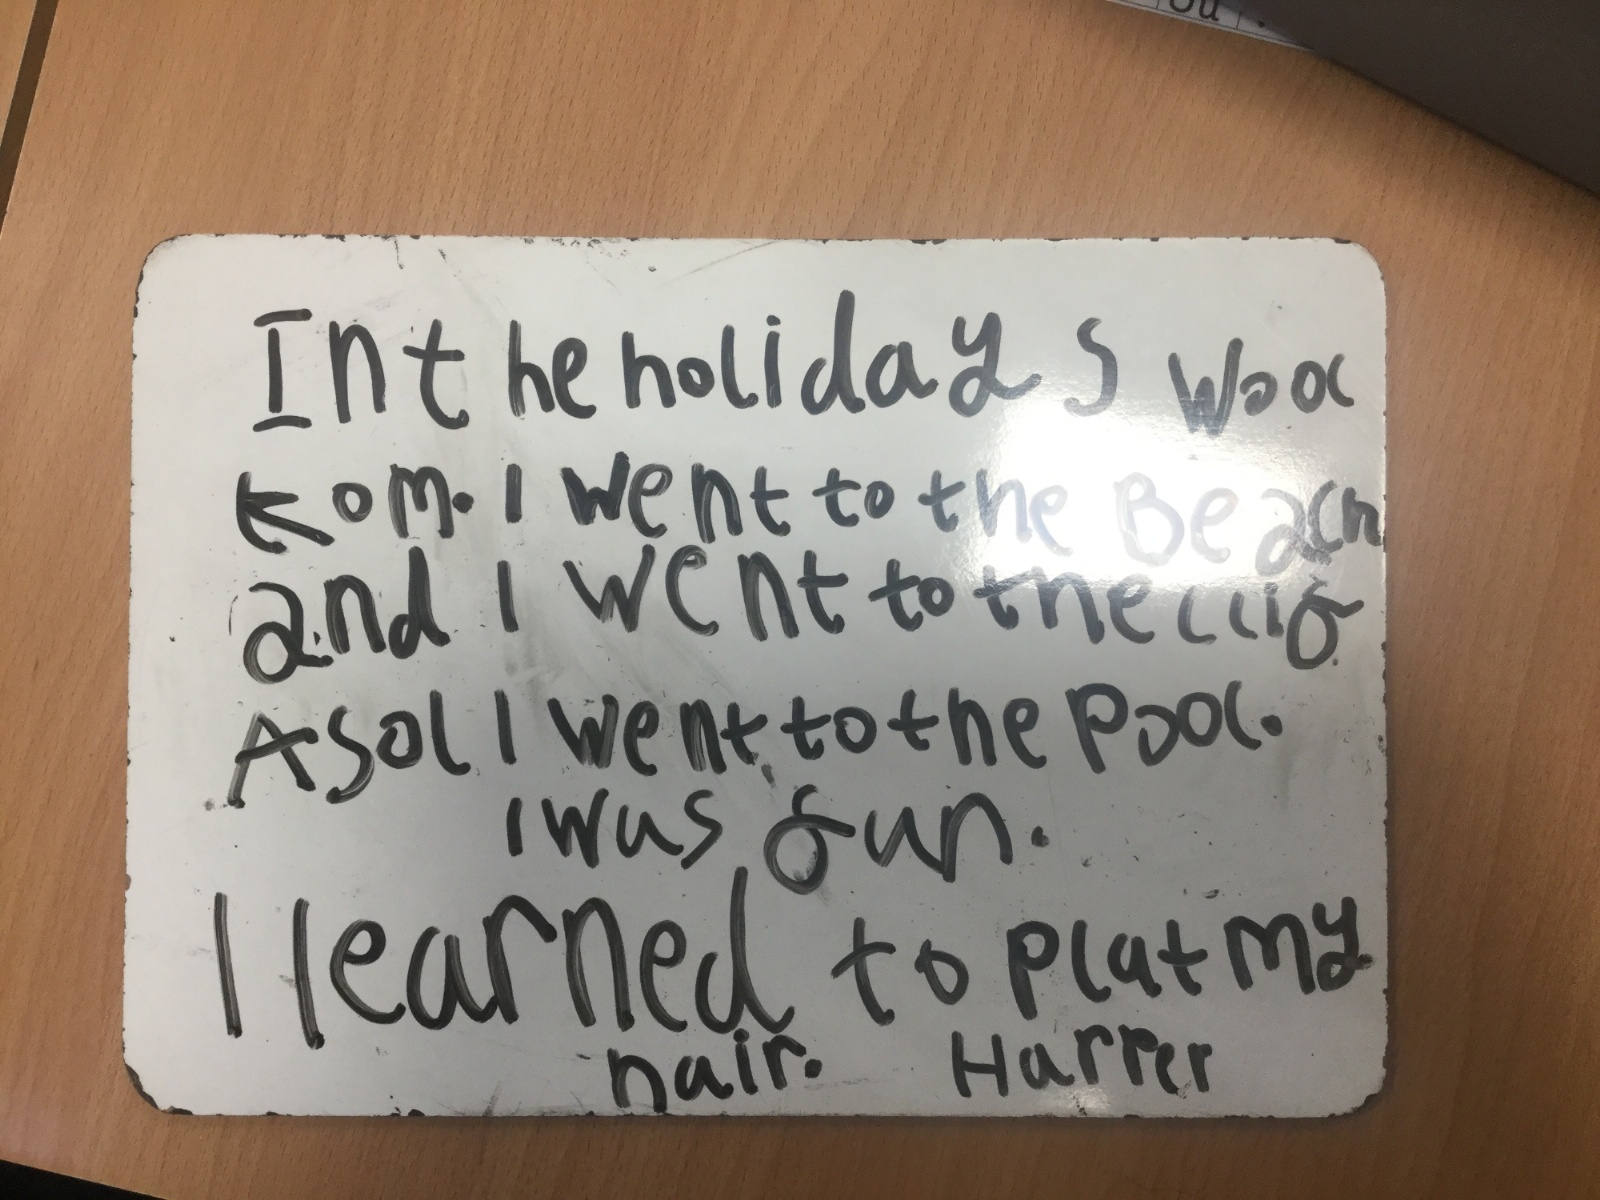 ou.
In the holidays Wool
Kom. I went to the Beach
and I went to the
Asol I went to the Pool.
I was fun.
I learned to plat my
hair. Harper